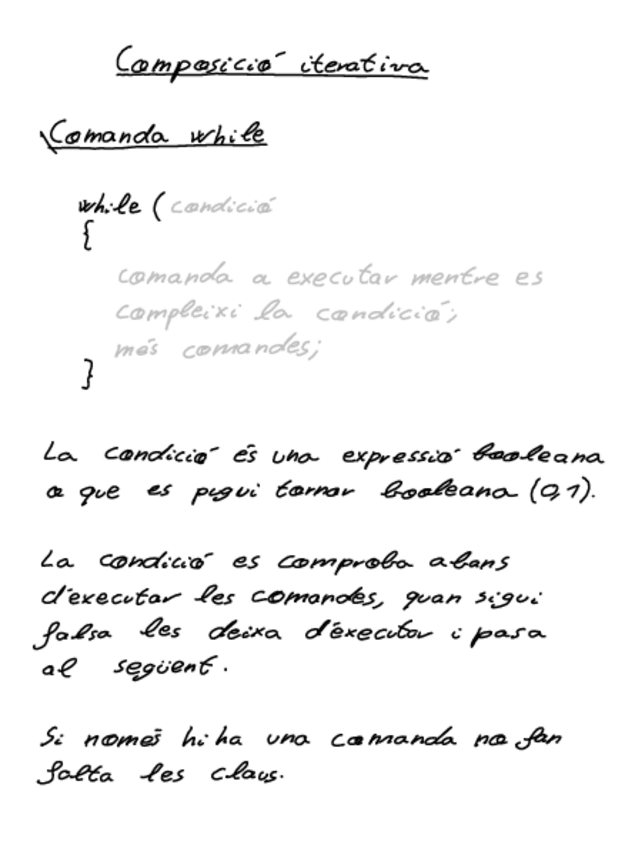 Composició iterativa
Comanda while
while ( condició
{
comanda a executar mentre es
compleixi la condició;
més comandes;
}
La condició és una expressió booleana
o que es pugui tornar booleana (0,1).
La condició es comproba abans
d'executar les comandes, quan sigui
falsa les deixa d'executar i pasa
al següent.
Si només hi ha una comanda no fan
falta les claus.